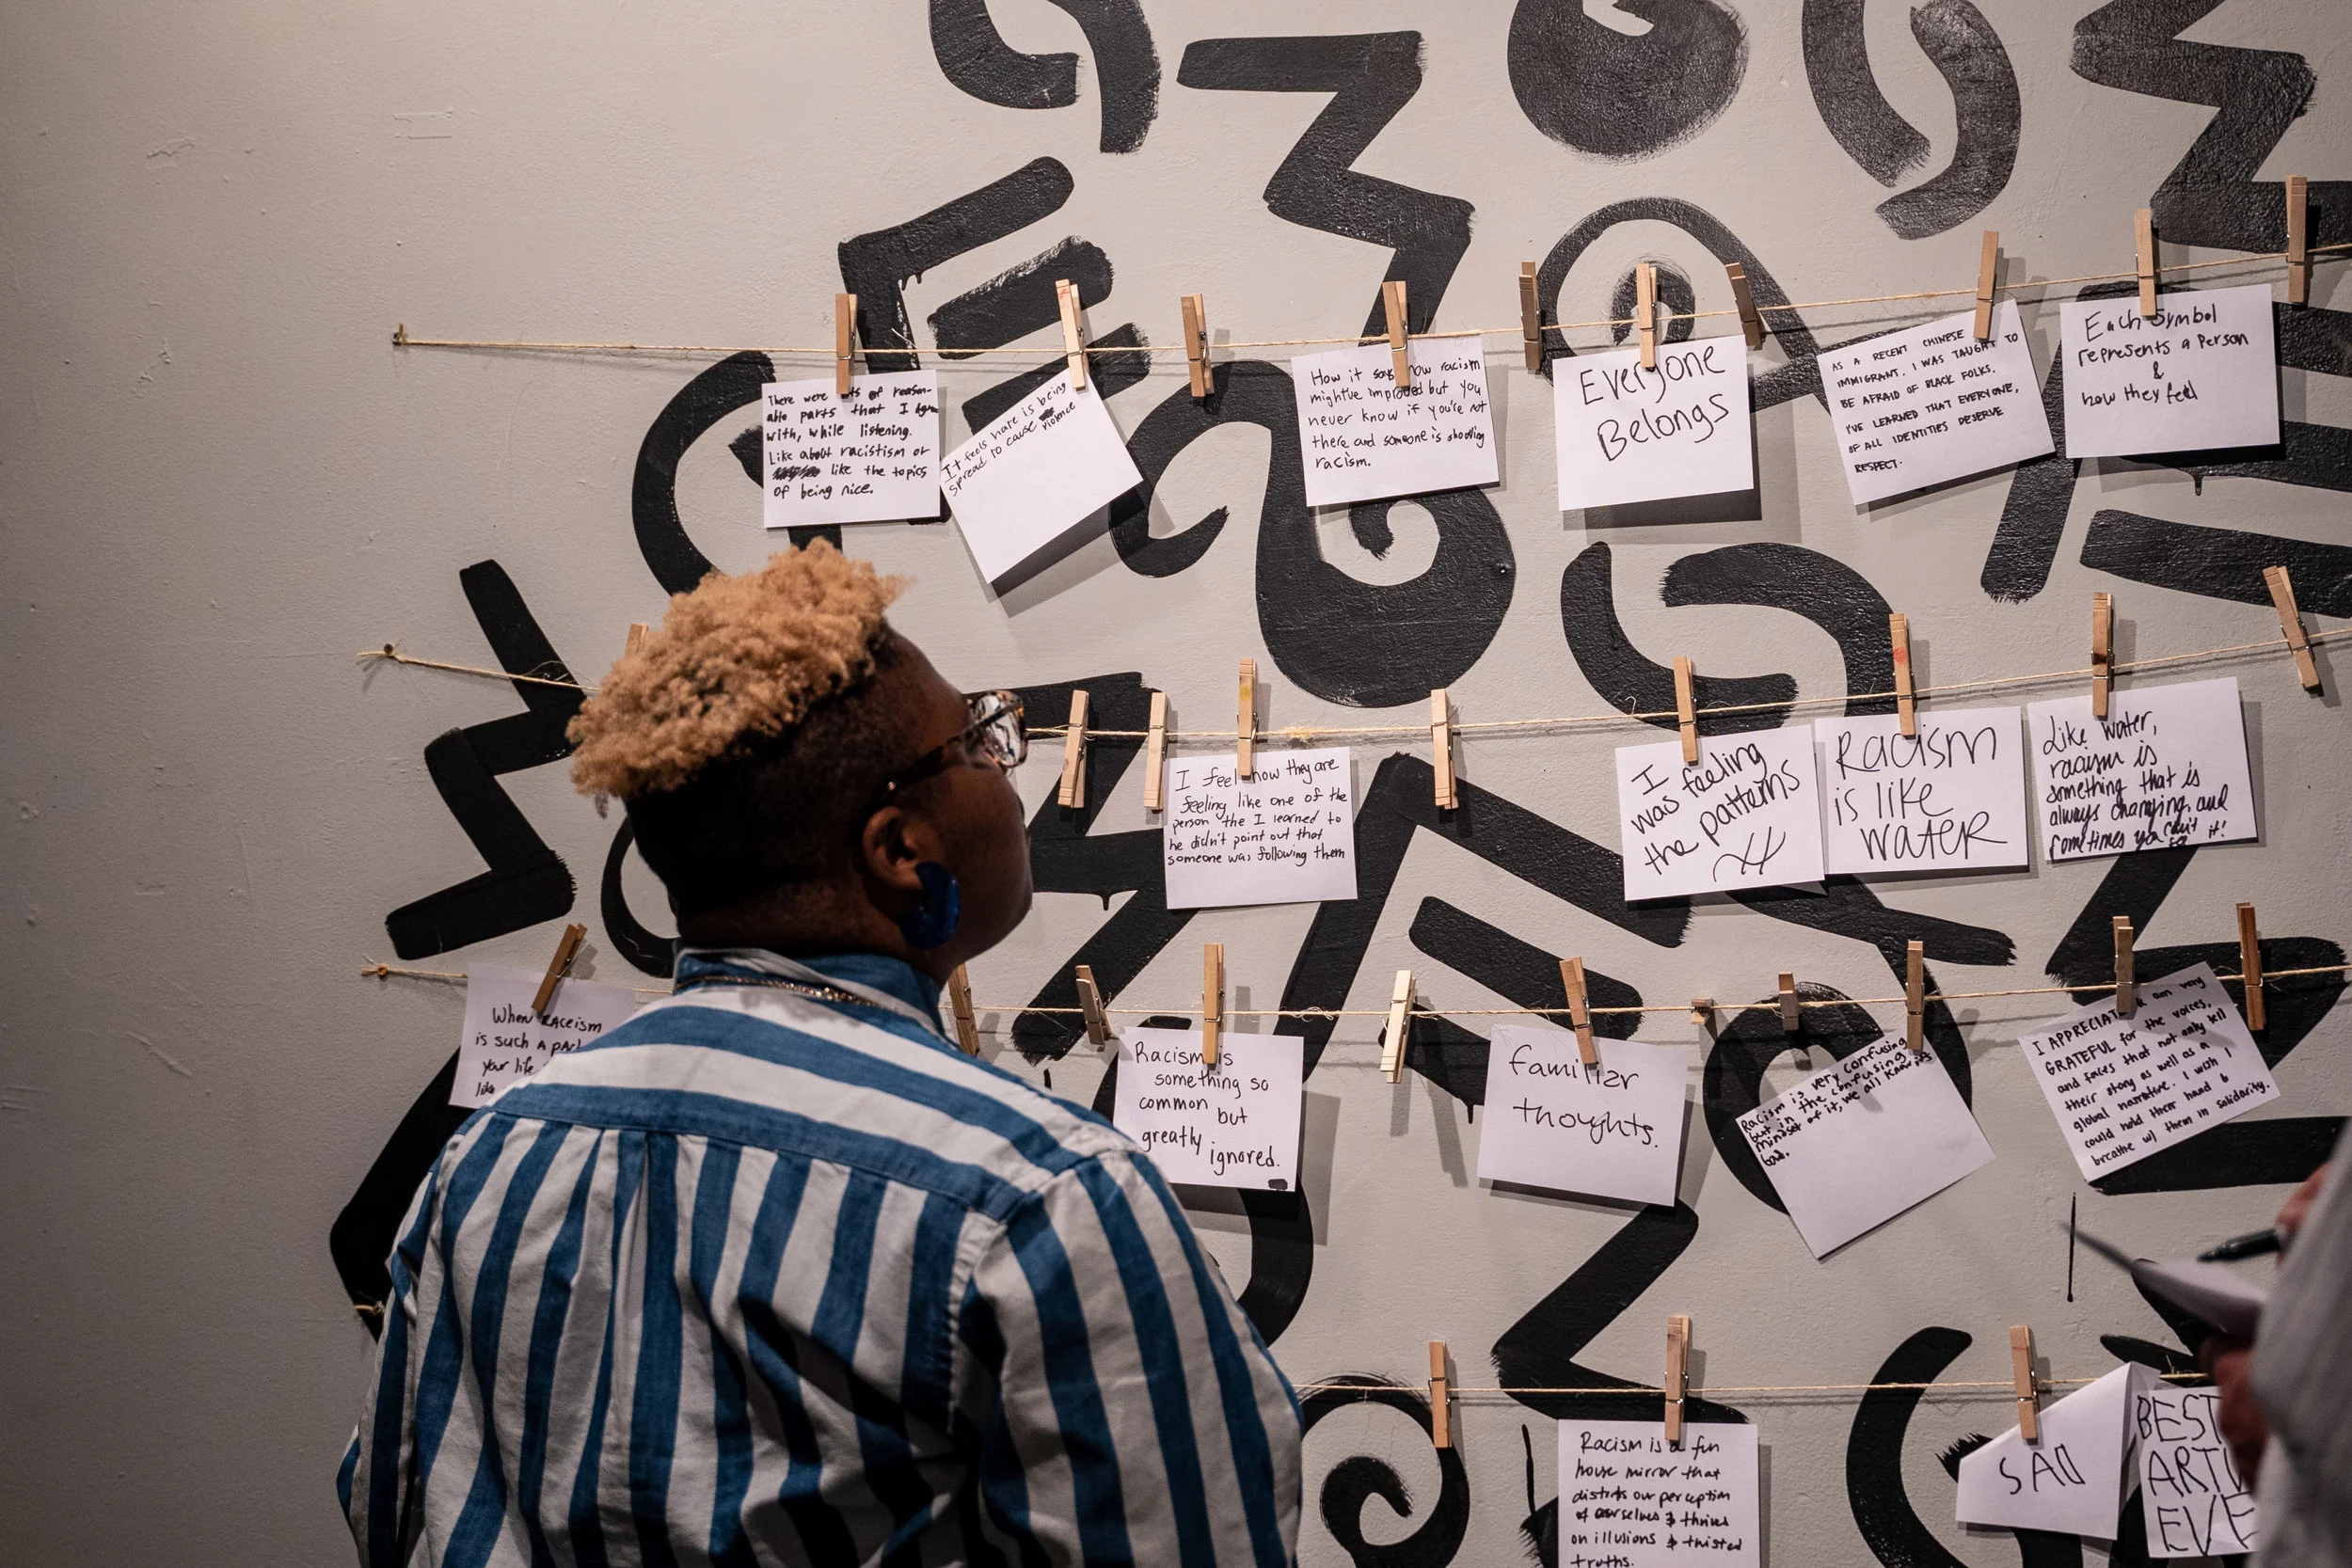 There were of reason-
able parts that I agree
with, while listening.
Like about racistism or
like the topics
of being nice.
It feels hate is being
spread to cause violence
How it says how racism
might've improved but you
never know if you're not
there and someone is shooting
racism.
Everyone
Belongs
AS A RECENT CHINESE
IMMIGRANT. I WAS TAUGHT TO
BE AFRAID OF BLACK FOLKS.
I'VE LEARNED THAT EVERYONE,
OF ALL IDENTITIES DESERVE
RESPECT.
Each Symbol
represents a Person
&
how they feel
I feel how they are
feeling like one of the
person the I learned to
he didn't point out that
someone was following them
I
was feeling
the patterns
Racism
is like
WATER
Like water,
racism is
something that is
always changing, and
sometimes you can't
it!
When RACEism
is such A
your life
like
Racism is
something so
common but
greatly ignored.
familiar
thoughts.
Racism is very confusing
but in the confusing
mindset of it, we all know it's
bad.
I APPRECIATE am very
GRATEFUL for the voices,
and faces that not only tell
their story as well as a
global narrative. I wish I
could hold their hand &
breathe w/ them in solidarity.
Racism is a fun
house mirror that
distorts our perception
of ourselves & thrives
on illusions & twisted
truths.
SAD
BEST
ART
EVE